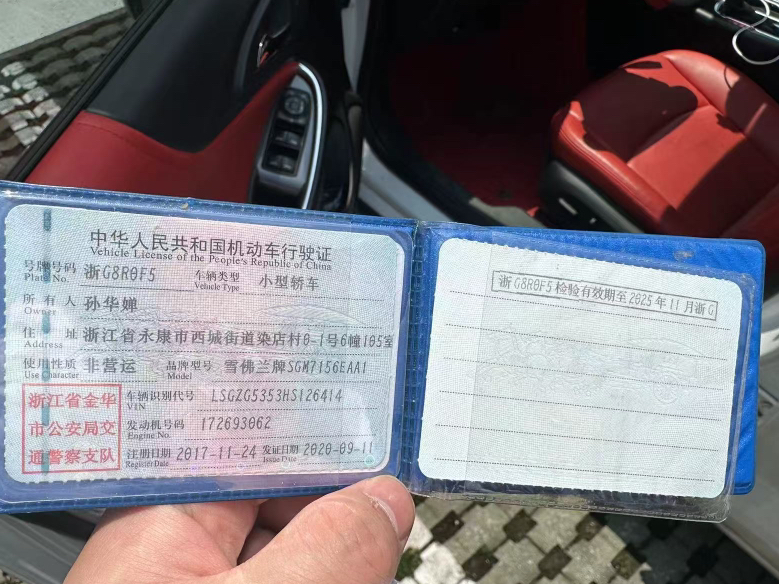 中华人民共和国机动车行驶证
Vehicle License of the People's Republic of China
号牌号码 浙G8R0F5 车辆类型 小型轿车
Plate No. Vehicle Type
所有人 孙华婵
Owner
住址 浙江省永康市西城街道染店村0-1号6幢105室
Address
使用性质 非营运 品牌型号 雪佛兰牌SGM7156EAA1
Use Character Model
浙江省金华
市公安局交
通警察支队
车辆识别代号 LSGZG5353HS126414
VIN
发动机号码 172693062
Engine No.
注册日期 2017-11-24 发证日期 2020-09-11
Register Date Issue Date
浙G8R0F5检验有效期至2025年11月浙G